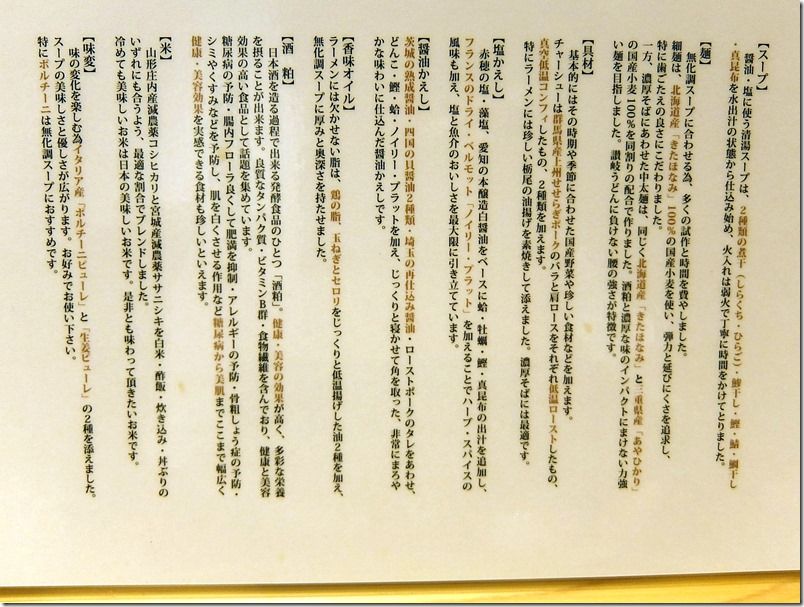 【スープ】
醤油・塩に使う清湯スープは、2種類の煮干(しらくち・ひらご)・鯵干し・鰹・鯖・鯛干し
・真昆布を水出汁の状態から仕込み始め、火入れは弱火で丁寧に時間をかけてとりました。
【麺】
無化調スープに合わせる為、多くの試作と時間を費やしました。
細麺は、北海道産「きたほなみ」100%の国産小麦を使い、弾力と延びにくさを追求し、
特に歯ごたえの良さにこだわりました。
一方、濃厚そばにあわせた中太麺は、同じく北海道産「きたほなみ」と三重県産「あやひかり」
の国産小麦100%を同割りの配合で作りました。酒粕と濃厚な味のインパクトにまけない力強
い麺を目指しました。讃岐うどんに負けない腰の強さが特徴です。
【具材】
基本的にはその時期や季節に合わせた国産野菜や珍しい食材などを加えます。
チャーシューは群馬県産上州せせらぎポークのバラと肩ロースをそれぞれ低温ローストしたもの、
真空低温コンフィしたもの、2種類を加えます。
特にラーメンには珍しい栃尾の油揚げを素焼きして添えました。濃厚そばには最適です。
【塩かえし】
赤穂の塩・藻塩、愛知の本醸造白醤油をベースに蛤・牡蠣・鰹・真昆布の出汁を追加し、
フランスのドライ・ベルモット「ノイリー・プラット」を加えることでハーブ・スパイスの
風味も加え、塩と魚介のおいしさを最大限に引き立てています。
【醤油かえし】
茨城の熟成醤油・四国の具醤油2種類、埼玉の再仕込み醤油・ローストポークのタレをあわせ、
どんこ・鰹・蛤・ノイリー・プラットを加え、じっくりと寝かせて角を取った、非常にまろや
かな味わいに仕込んだ醤油かえしです。
【香味オイル】
ラーメンには欠かせない脂は、鶏の脂、玉ねぎとセロリをじっくりと低温揚げした油2種を加え、
無化調スープに厚みと奥深さを持たせました。
【酒 粕】
日本酒を造る過程で出来る発酵食品のひとつ「酒粕」。健康・美容の効果が高く、多彩な栄養
を摂ることが出来ます。良質なタンパク質・ビタミンB群・食物繊維を含んでおり、健康と美容
効果の高い食品として話題を集めています。
糖尿病の予防・腸内フローラ良くして肥満を抑制・アレルギーの予防・骨粗しょう症の予防・
シミやくすみなどを予防し、肌を白くさせる作用など糖尿病から美肌までここまで幅広く
健康・美容効果を実感できる食材も珍しいといえます。
【米】
山形庄内産減農薬コシヒカリと宮城産減農薬ササニシキを白米・酢飯・炊き込み・丼ぶりの
いずれにも合うよう、最適な割合でブレンドしました。
冷めても美味しいお米は日本の美味しいお米です。是非とも味わって頂きたいお米です。
【味変】
味の変化を楽しむ為イタリア産「ポルチーニピューレ」と「生姜ピューレ」の2種を添えました。
スープの美味しさと優しさが広がります。お好みでお使い下さい。
特にポルチーニは無化調スープにおすすめです。